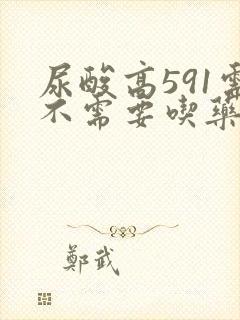 尿酸高591需
不需要喫藥
鄭武